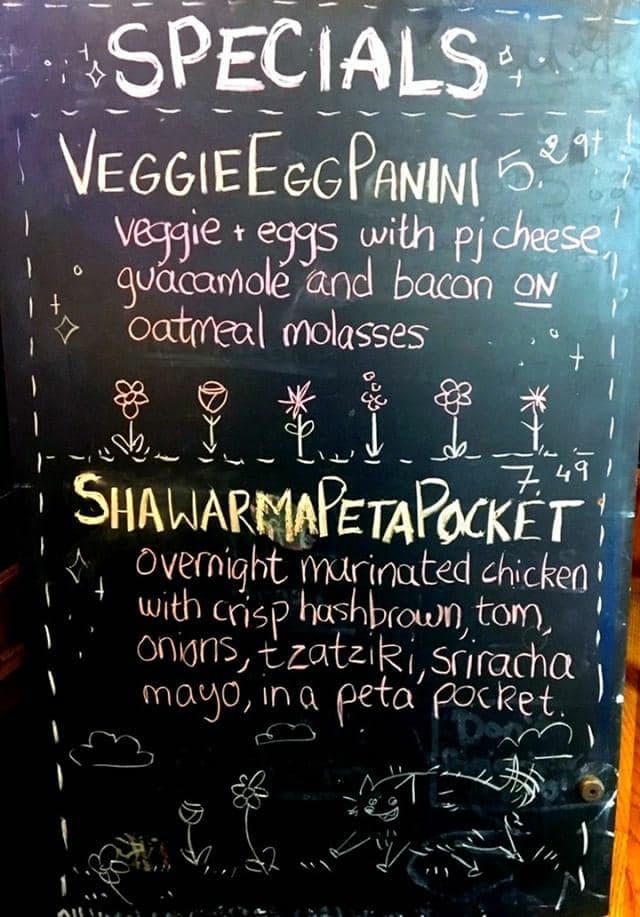 SPECIALS
VEGGIE EGG PANINI 5.29+
veggie + eggs with pj cheese,
guacamole and bacon ON
oatmeal molasses
7.49
SHAWARMA PETA POCKET
overnight marinated chicken
with crisp hashbrown, tom,
onions, tzatziki, sriracha
mayo, in a peta pocket.